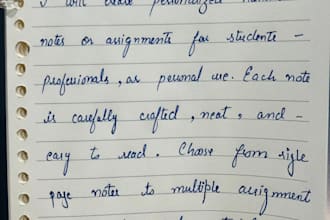 I will create personalized
notes or assignments for students –
professionals, or personal use. Each note
is carefully crafted, neat, and –
easy to read. Choose from sigle
page notes to multiple assignment